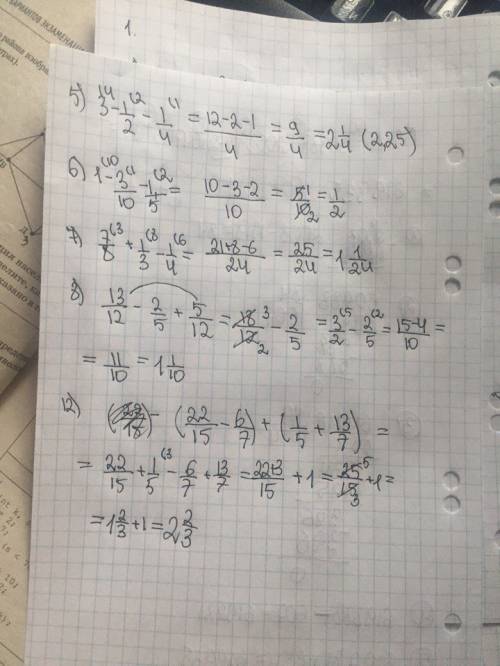 1.
5) 3 - 1/2 - 1/4 = (12-2-1)/4 = 9/4 = 2 1/4 (2,25)
6) 1 - 3/10 - 1/5 = (10-3-2)/10 = 5/10 = 1/2
7) 7/8 + 1/3 - 1/4 = (21+8-6)/24 = 25/24 = 1 1/24
8) 13/12 - 2/5 + 5/12 = 18/12 - 2/5 = 3/2 - 2/5 = (15-4)/10 =
= 11/10 = 1 1/10
12) (22/15 - 6/7) + (1/5 + 13/7) =
= 22/15 + 1/5 - 6/7 + 13/7 = (22+3)/15 + 1 = 25/15 + 1 =
= 1 2/3 + 1 = 2 2/3